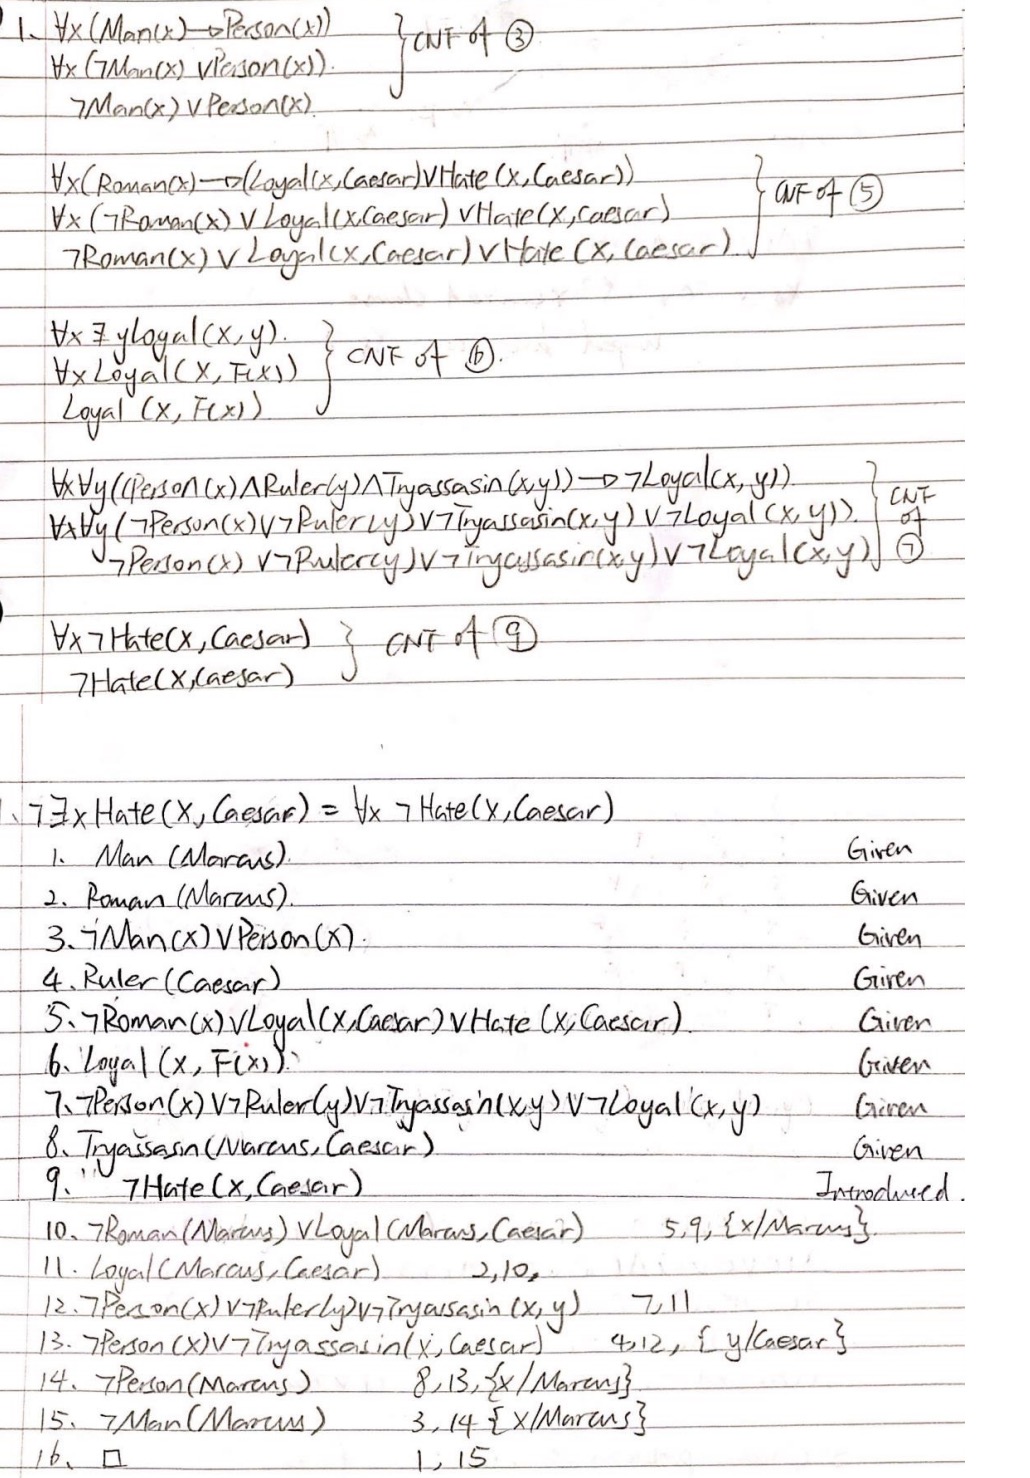 1. ∀x(Man(x)→Person(x))
∀x(¬Man(x)∨Person(x)).
¬Man(x)∨Person(x).
} CNF of ③
∀x(Roman(x)→(Loyal(x,Caesar)∨Hate(x,Caesar))
∀x(¬Roman(x)∨Loyal(x,Caesar)∨Hate(x,Caesar)
¬Roman(x)∨Loyal(x,Caesar)∨Hate(x,Caesar).
} CNF of ⑤
∀x∃yLoyal(x,y).
∀xLoyal(x,F(x))
Loyal(x,F(x))
} CNF of ⑥.
∀x∀y((Person(x)∧Ruler(y)∧Tryassasin(x,y))→¬Loyal(x,y))
∀x∀y(¬Person(x)∨¬Ruler(y)∨¬Tryassasin(x,y)∨¬Loyal(x,y)).
¬Person(x)∨¬Ruler(y)∨¬Tryassasin(x,y)∨¬Loyal(x,y)
} CNF of ⑦
∀x¬Hate(x,Caesar)
¬Hate(x,Caesar)
} CNF of ⑨
¬∃xHate(x,Caesar) = ∀x ¬Hate(x,Caesar)
1. Man(Marcus). Given
2. Roman(Marcus). Given
3. ¬Man(x)∨Person(x). Given
4. Ruler(Caesar) Given
5. ¬Roman(x)∨Loyal(x,Caesar)∨Hate(x,Caesar). Given
6. Loyal(x,F(x)). Given
7. ¬Person(x)∨¬Ruler(y)∨¬Tryassasin(x,y)∨¬Loyal(x,y) Given
8. Tryassasin(Marcus,Caesar) Given
9. ¬Hate(x,Caesar) Introduced.
10. ¬Roman(Marcus)∨Loyal(Marcus,Caesar) 5,9,{x/Marcus}.
11. Loyal(Marcus,Caesar) 2,10,
12. ¬Person(x)∨¬Ruler(y)∨¬Tryassasin(x,y) 7,11
13. ¬Person(x)∨¬Tryassasin(x,Caesar) 4,12,{y/Caesar}
14. ¬Person(Marcus) 8,13,{x/Marcus}
15. ¬Man(Marcus) 3,14{x/Marcus}
16. □ 1,15